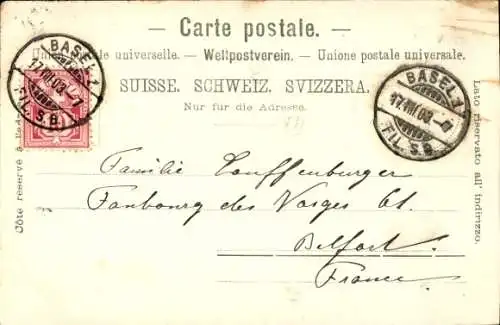 Carte postale.
Union postale universelle. — Weltpostverein. — Unione postale universale.
SUISSE. SCHWEIZ. SVIZZERA.
Nur für die Adresse.
BASEL 1
17.VII.03.–7
FIL. S.B.
BASEL 1
17.VII.03.–7
FIL. S.B.
Côté réservé à l'adr
Lato riservato all' indirizzo.
Familie Lauffenburger
Faubourg des Vosges 61.
Belfort.
France